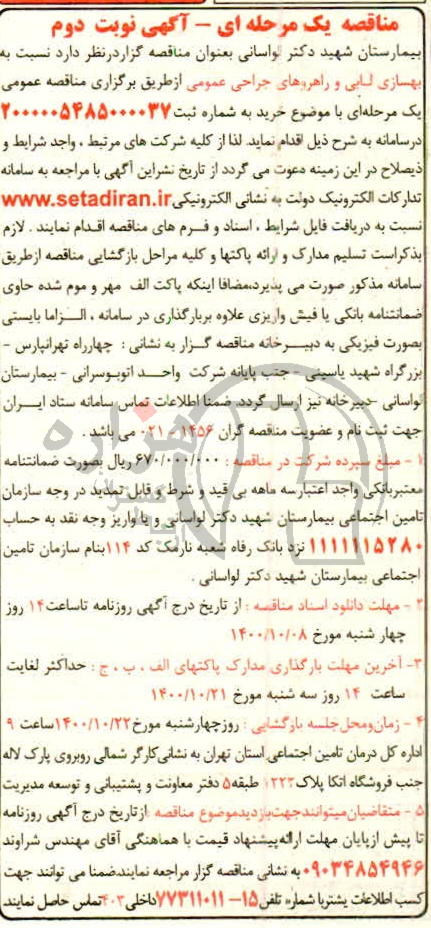 مناقصه یک مرحله ای - آگهی نوبت دوم
بیمارستان شهید دکتر لواسانی بعنوان مناقصه گزاردرنظر دارد نسبت به
بهسازی لابی و راهروهای جراحی عمومی ازطریق برگزاری مناقصه عمومی
یک مرحله‌ای با موضوع خرید به شماره ثبت ۲۰۰۰۰۰۵۴۸۵۰۰۰۰۳۷
درسامانه به شرح ذیل اقدام نماید. لذا از کلیه شرکت های مرتبط ، واجد شرایط و
ذیصلاح در این زمینه دعوت می گردد از تاریخ نشراین آگهی با مراجعه به سامانه
تدارکات الکترونیک دولت به نشانی الکترونیکی www.setadiran.ir
نسبت به دریافت فایل شرایط ، اسناد و فرم های مناقصه اقدام نمایند . لازم
بذکراست تسلیم مدارک و ارائه پاکتها و کلیه مراحل بازگشایی مناقصه ازطریق
سامانه مذکور صورت می پذیرد،مضافا اینکه پاکت الف مهر و موم شده حاوی
ضمانتنامه بانکی یا فیش واریزی علاوه بربارگذاری در سامانه ، الزاما بایستی
بصورت فیزیکی به دبیرخانه مناقصه گزار به نشانی : چهارراه تهرانپارس -
بزرگراه شهید یاسینی - جنب پایانه شرکت واحد اتوبوسرانی - بیمارستان
لواسانی -دبیرخانه نیز ارسال گردد. ضمنا اطلاعات تماس سامانه ستاد ایران
جهت ثبت نام و عضویت مناقصه گران ۱۴۵۶ - ۰۲۱ می باشد .
۱ - مبلغ سپرده شرکت در مناقصه : ۶۷۰/۰۰۰/۰۰۰ ریال بصورت ضمانتنامه
معتبربانکی واجد اعتبارسه ماهه بی قید و شرط و قابل تمدید در وجه سازمان
تامین اجتماعی بیمارستان شهید دکتر لواسانی و یا واریز وجه نقد به حساب
۱۱۱۱۱۱۵۲۸۰ نزد بانک رفاه شعبه نارمک کد ۱۱۴ بنام سازمان تامین
اجتماعی بیمارستان شهید دکتر لواسانی .
۲ - مهلت دانلود اسناد مناقصه : از تاریخ درج آگهی روزنامه تاساعت ۱۴ روز
چهار شنبه مورخ ۱۴۰۰/۱۰/۰۸
۳- آخرین مهلت بارگذاری مدارک پاکتهای الف ، ب ، ج : حداکثر لغایت
ساعت ۱۴ روز سه شنبه مورخ ۱۴۰۰/۱۰/۲۱
۴ - زمان‌ومحل‌جلسه بازگشایی : روزچهارشنبه مورخ ۱۴۰۰/۱۰/۲۲ ساعت ۹
اداره کل درمان تامین اجتماعی استان تهران به نشانی کارگر شمالی روبروی پارک لاله
جنب فروشگاه اتکا پلاک ۱۲۲۳ طبقه ۵ دفتر معاونت و پشتیبانی و توسعه مدیریت
۵ - متقاضیان‌میتوانندجهت‌بازدیدموضوع مناقصه ازتاریخ درج آگهی روزنامه
تا پیش ازپایان مهلت ارائه‌پیشنهاد قیمت با هماهنگی آقای مهندس شراوند
۰۹۰۳۴۸۵۴۹۴۶ به نشانی مناقصه گزار مراجعه نمایند.ضمنا می توانند جهت
کسب اطلاعات بیشتر با شماره تلفن ۱۵- ۷۷۳۱۱۰۱۱ داخلی ۴۰۳ تماس حاصل نمایند.